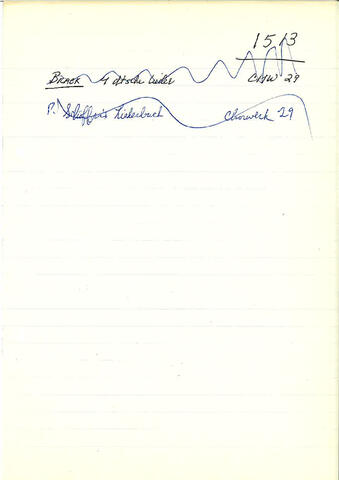 1513
BRACK 4 dtsche Lieder CHW 29
P. Schöffer's Liederbuch Chorwerk 29